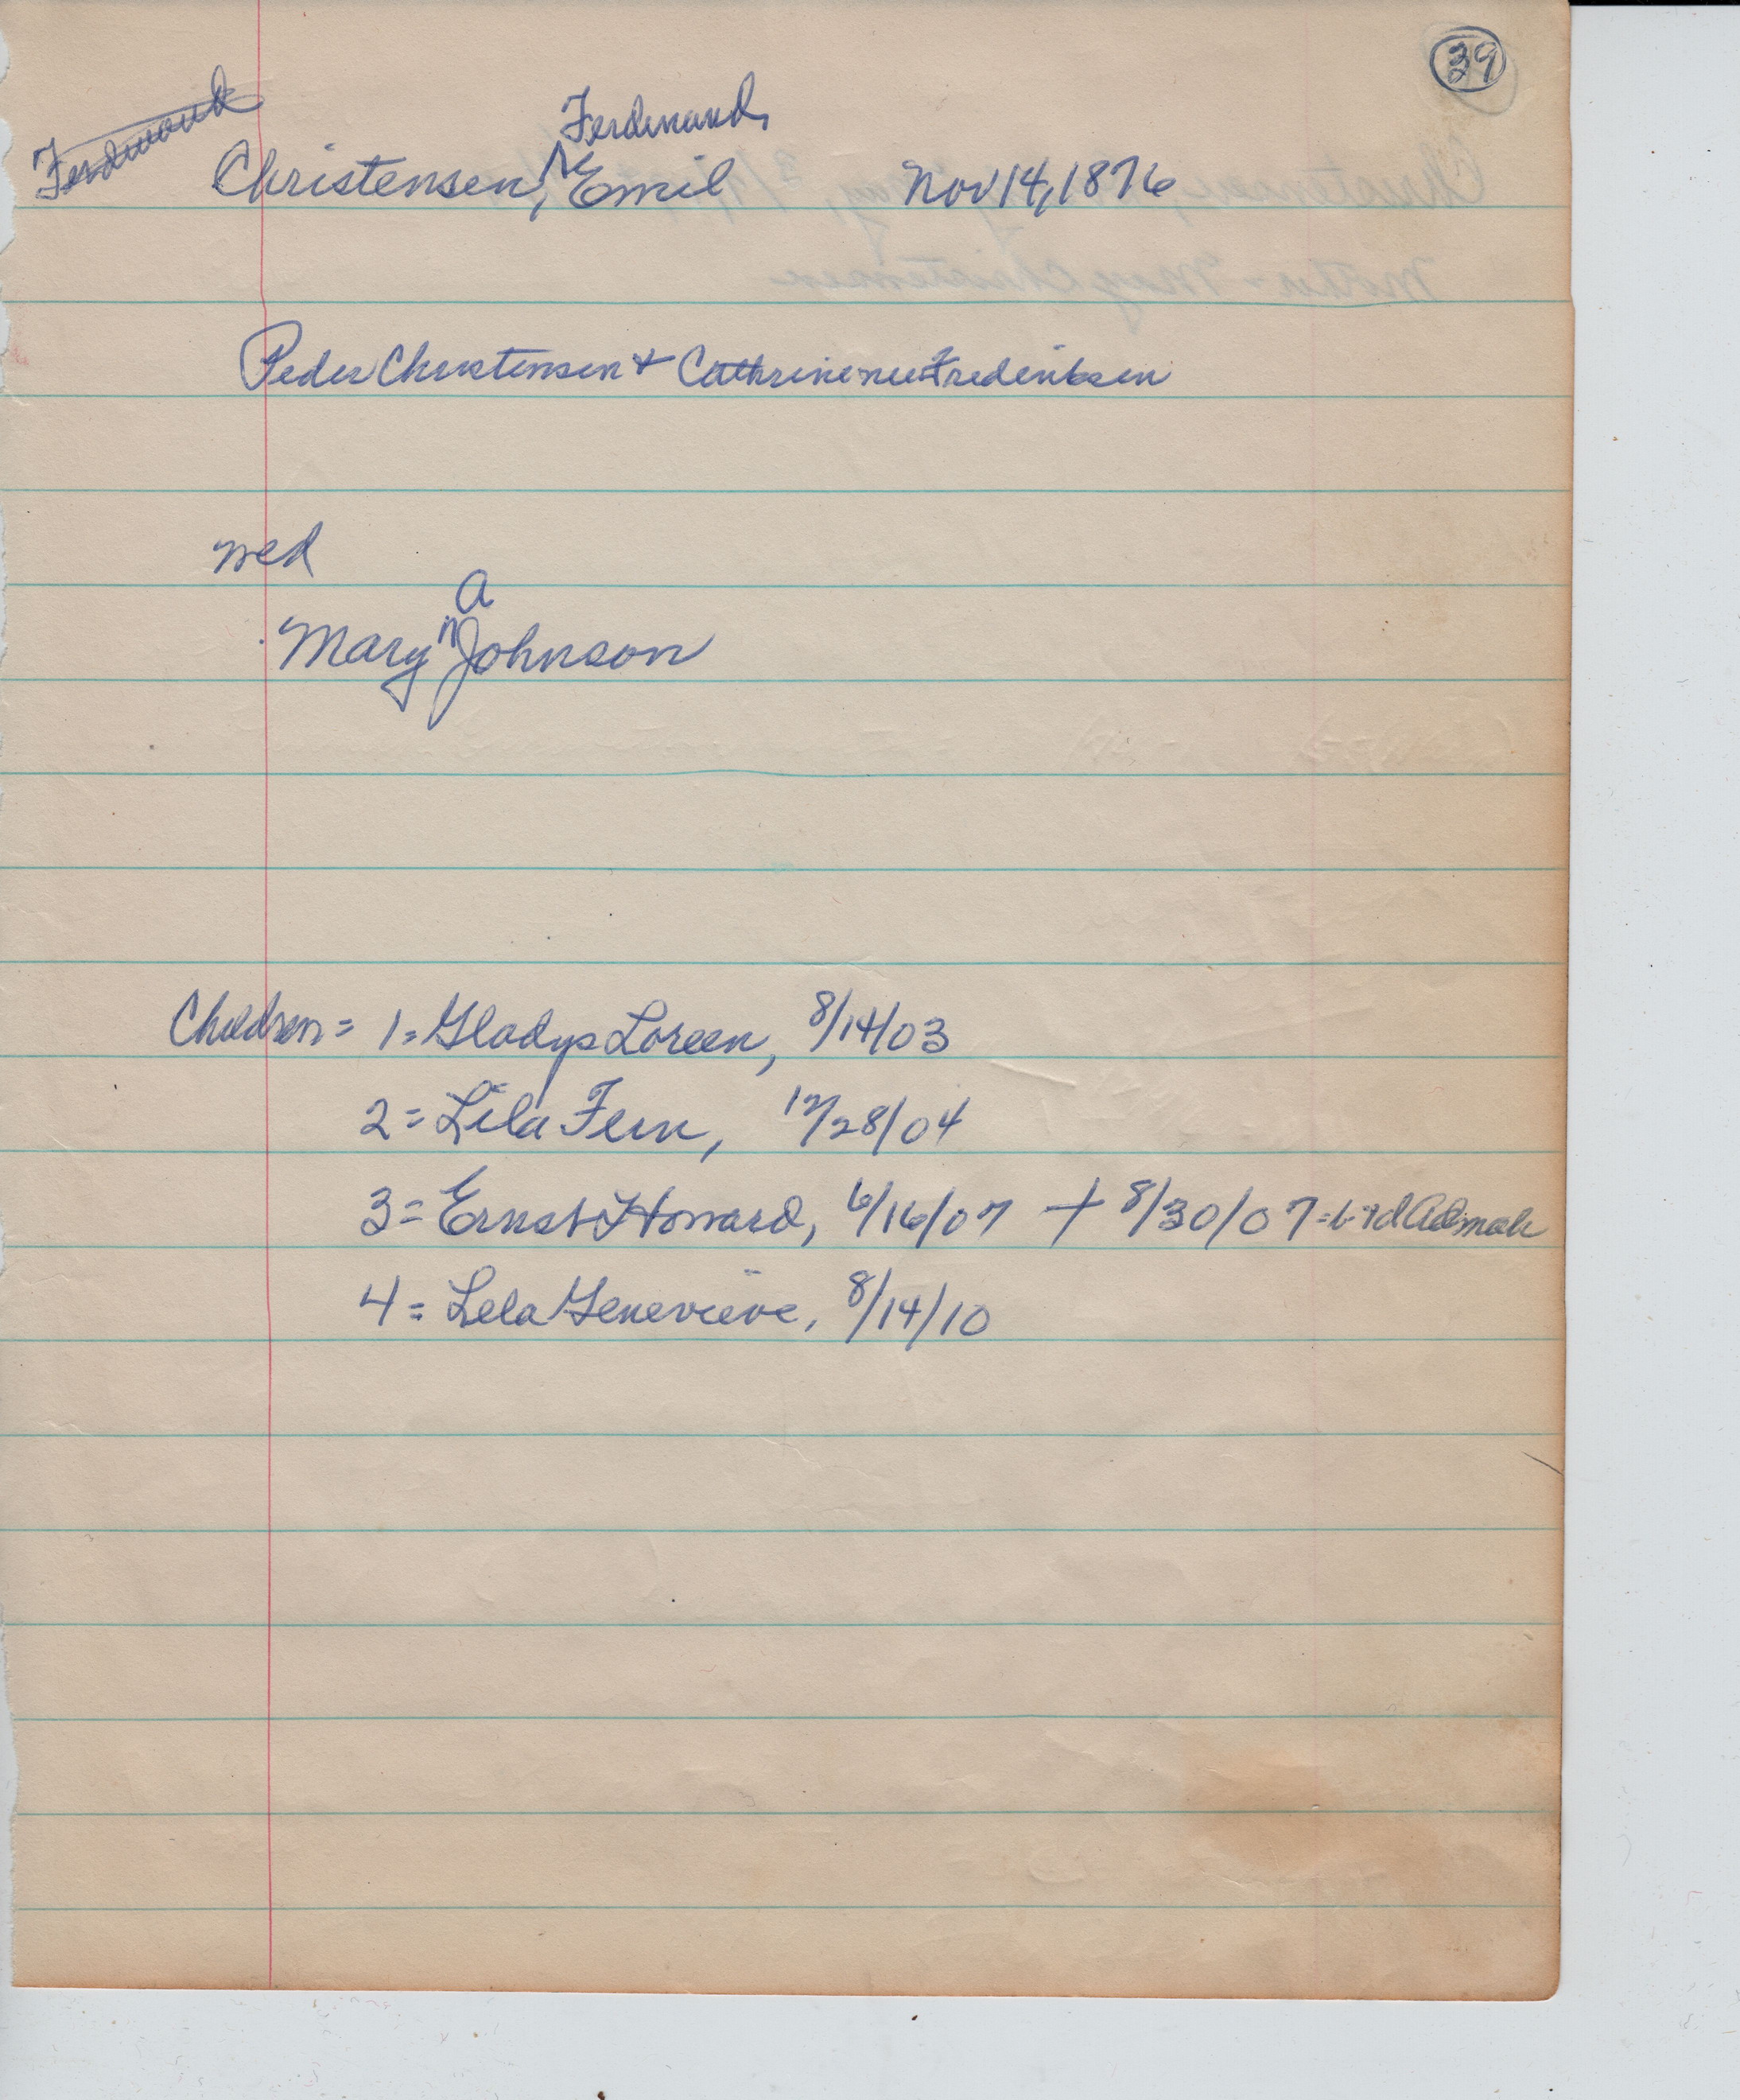 39
Ferdinand
Christensen, Ferdinand, Emil Nov 14, 1876
Peder Christensen + Cathrine nee Frederiksen
wed
Mary A Johnson
Children = 1 = Gladys Loreen, 8/14/03
2 = Lila Fern, 12/28/04
3 = Ernst Howard, 6/16/07 + 8/30/07 = b + d Admah
4 = Lela Genevieve, 8/14/10